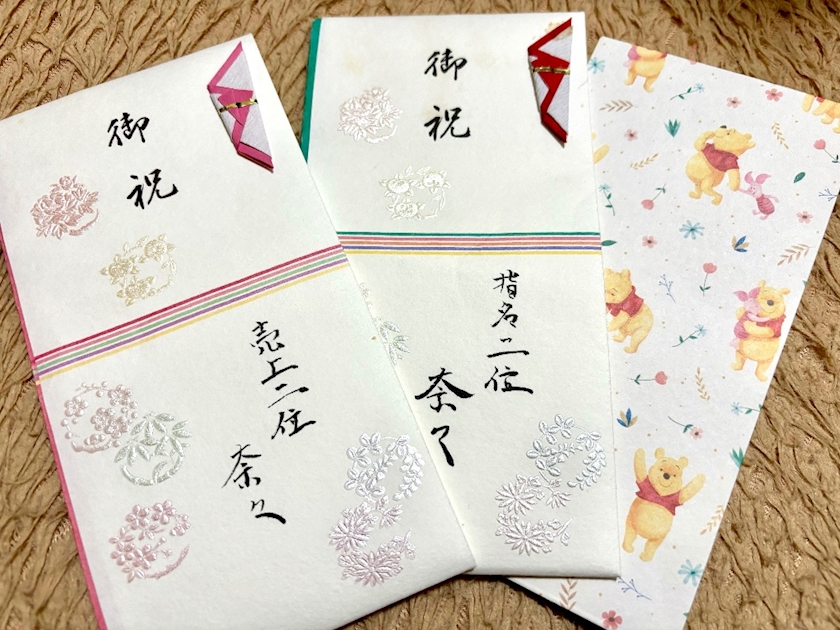 御祝
売上二位
奈々
御祝
指名二位
奈々